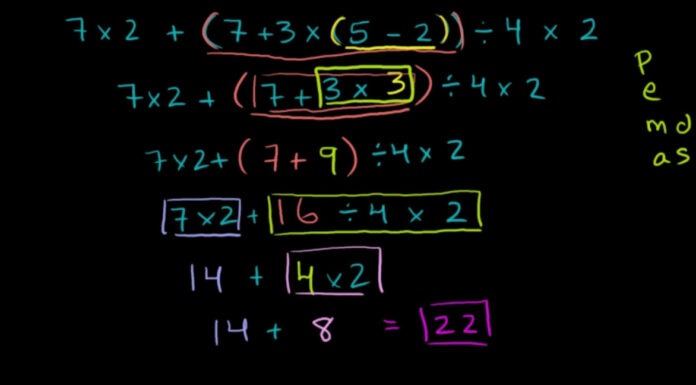 7 × 2 + (7 + 3 × (5 - 2)) ÷ 4 × 2
7 × 2 + (7 + 3 × 3) ÷ 4 × 2
7 × 2 + (7 + 9) ÷ 4 × 2
7 × 2 + 16 ÷ 4 × 2
14 + 4 × 2
14 + 8 = 22
P
e
m d
a s